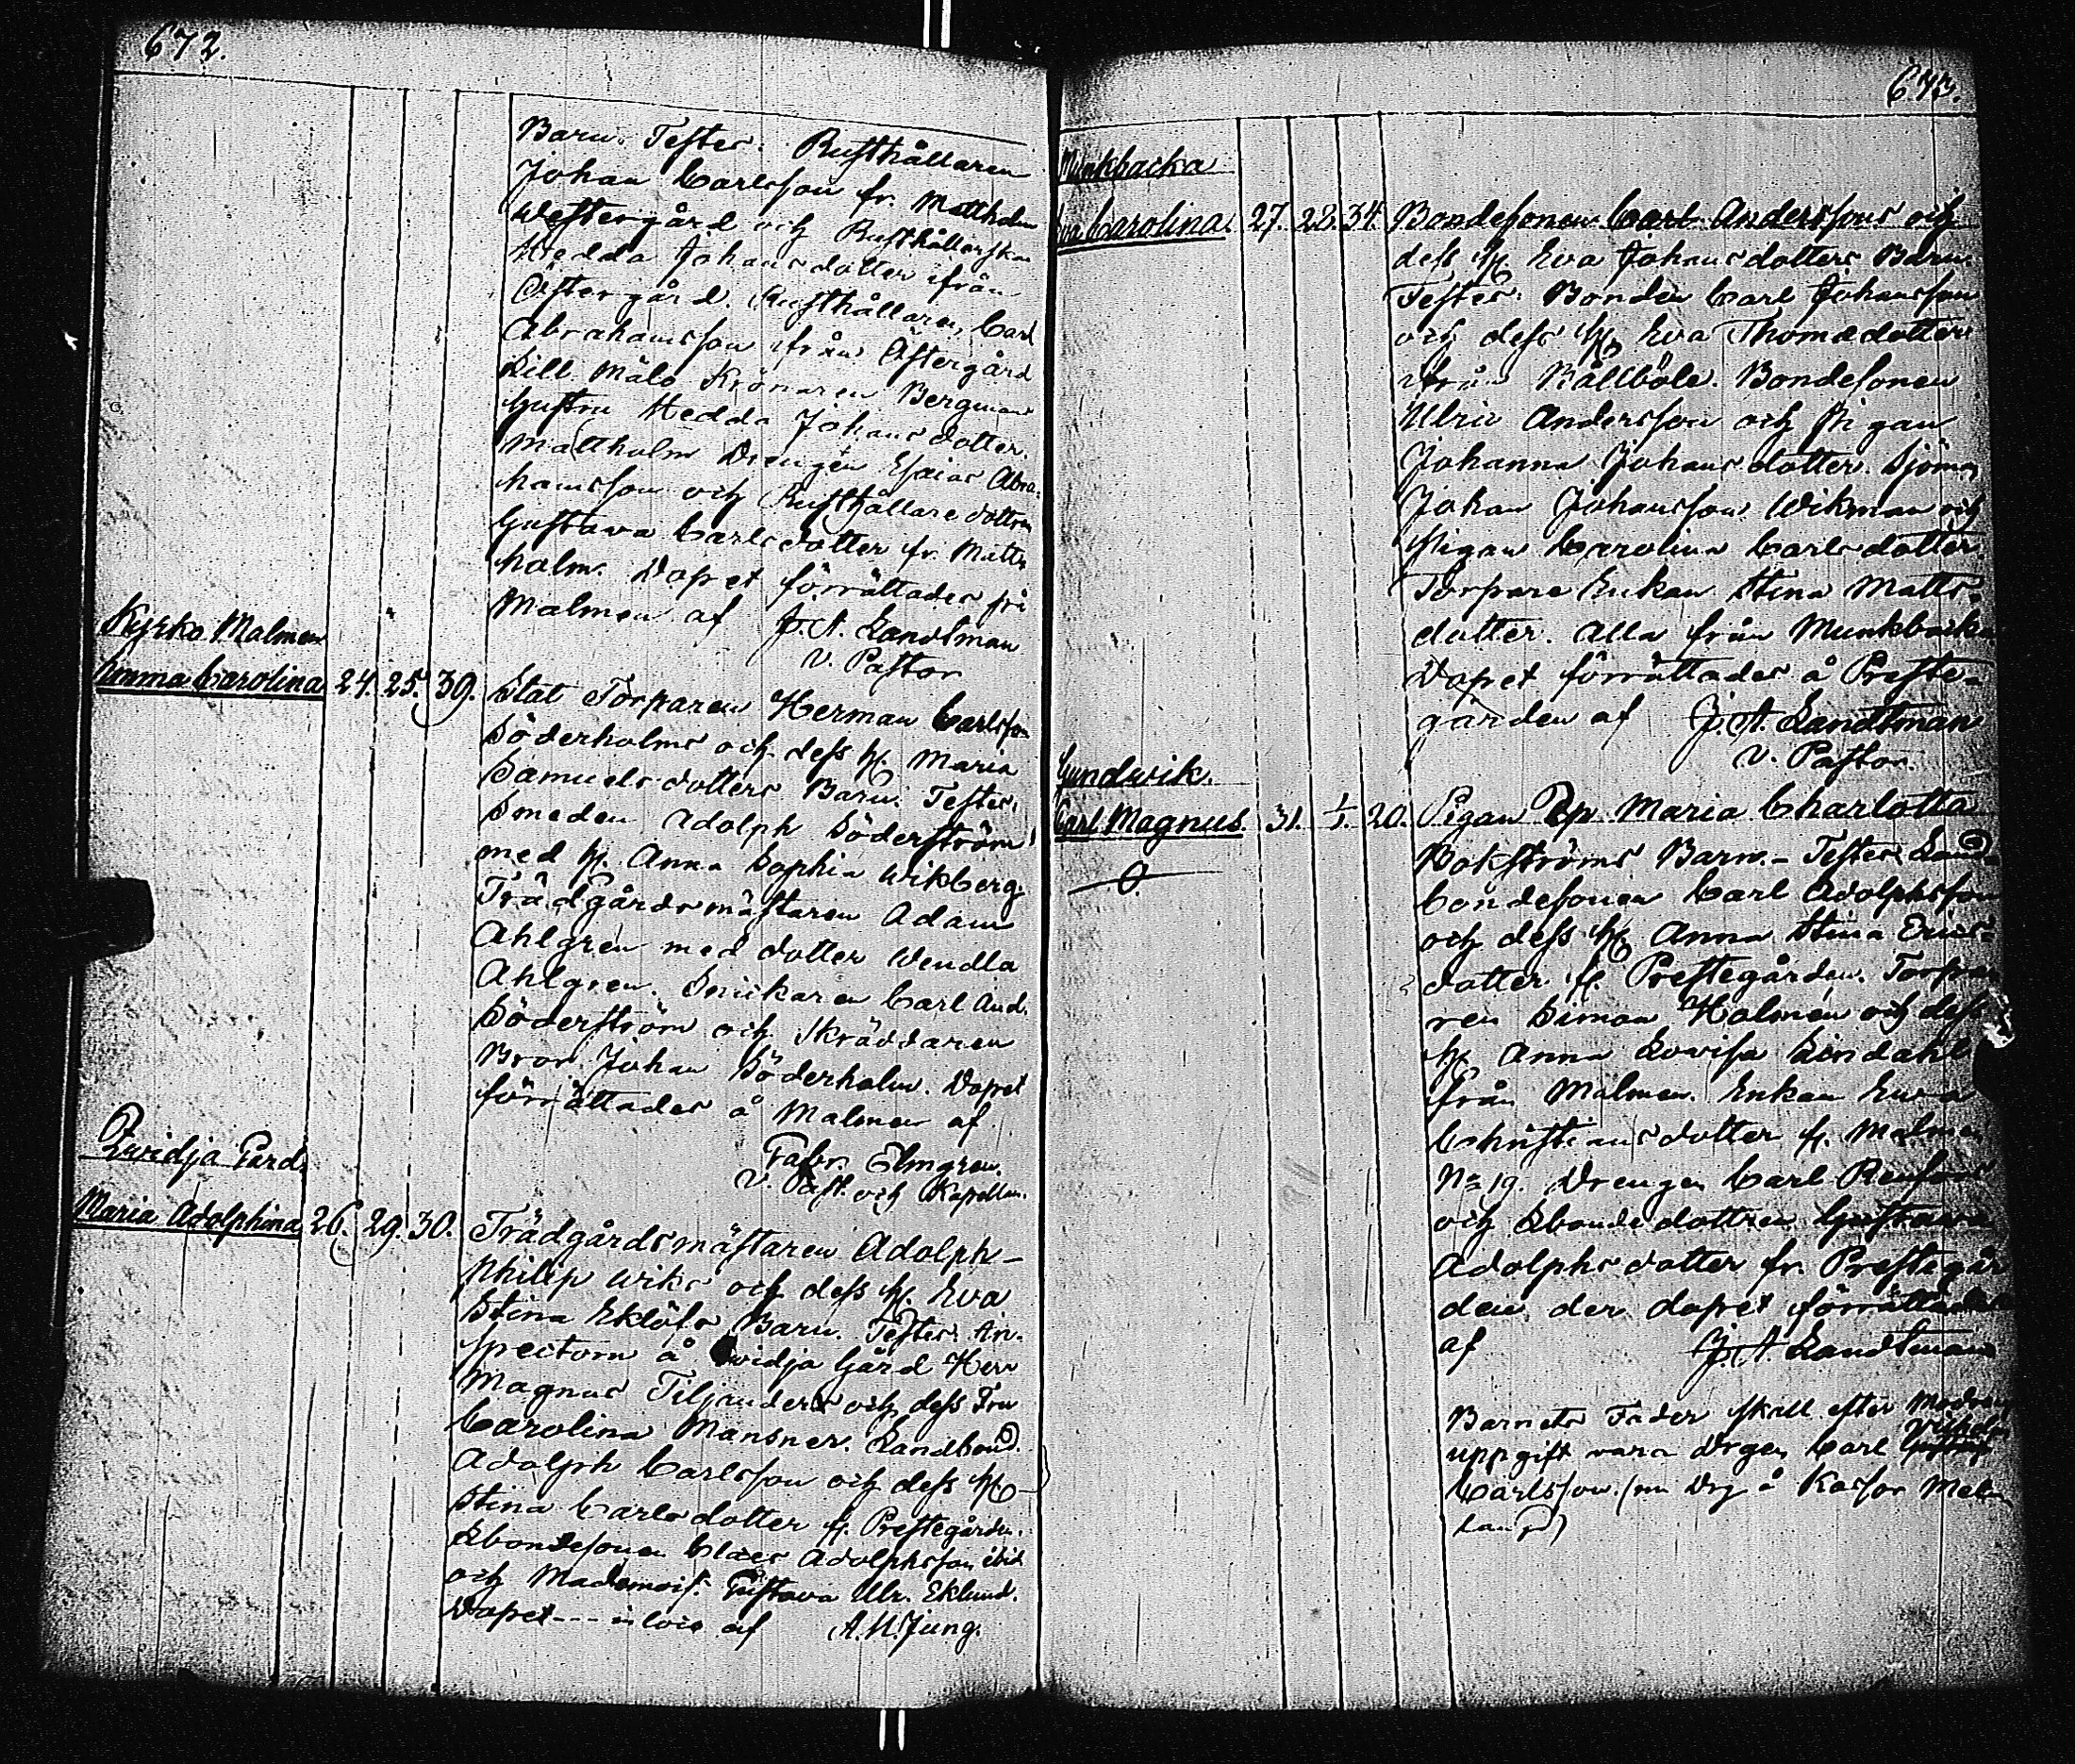 672.
Barn. Testes: Rusthållaren
Johan Carlsson fr. Mattholm
Westergård och Rusthållerskan
Hedda Johansdotter ifrån
Östergård. Rusthållaren, Carl
Abrahamsson ifrån Östergård
Krönaren Bergmans
Hustru Hedda Johansdotter.
Mattholm Drengen Esaias Abra-
hamsson och Rusthållaredottren
Gustava Carlsdotter fr. Matt-
holm. Dopet förrättades på
Malmen af J. A. Landtman
V. Pastor
Kyrko Malmen
Emma Carolina 24. 25. 39. Stat Torparen Herman Carlsson
Söderholms och dess H. Maria
Samuelsdotters Barn. Testes.
Smeden Adolph Söderström
med H. Anna Sophia Wikberg.
Trädgårdsmästaren Adam
Ahlgren med dotter Wendla
Ahlgren. Snickaren Carl And.
Söderström och Skräddaren
Bror Johan Söderholm. Dopet
förrättades å Malmen af
Fabr. Elmgren.
V. Past. och Kapellan.
Qvidja Gård
Maria Adolphina 26. 29. 30. Trädgårdsmästaren Adolph
Philip Wiks och dess H. Eva
Stina Eklöfs Barn. Testes: In-
spectorn å Qvidja Gård Herr
Magnus Tiljander och dess Fru
Carolina Mansner. Landbond.
Adolph Carlsson och dess H.
Stina Carlsdotter fr. Prestegården.
Lbondesonen Claes Adolphsson ibid
och Mademois. Gustava Ulr. Eklund.
Dopet --- in loco af A. M. Jung.
673.
Munkbacka
Eva Carolina. 27. 28. 34. Bondesonen Carl Anderssons och
dess H. Eva Johansdotters Barn.
Testes: Bonden Carl Johansson
och dess H. Eva Thomasdotter
ifrån Bållböle. Bondesonen
Ulric Andersson och Pigan
Johanna Johansdotter. Sjöman
Johan Johansson Wikman och
Pigan Carolina Carlsdotter
Torpare Enkan Stina Matts-
dotter. Alla från Munkbacka
Dopet förrättades å Preste-
gården af J. A. Landtman
V. Pastor.
Gundwik.
Carl Magnus 31. 1/1. 20. Pigan Maria Charlotta
O. Bokströms Barn. - Testes Land-
bondesonen Carl Adolphsson
och dess H. Anna Stina Erics-
dotter fr. Prestegården. Torpa-
ren Simon Holmén och dess
H. Anna Lovisa Lindahl
från Malmen. Enkan Eva
Christiansdotter fr. Malmen
No 19. Drengen Carl
och Lbondedottren Gustava
Adolphsdotter fr. Prestegår
den. der dopet förrättades
af J. A. Landtman
Barnets Fader skall efter Modrens
uppgift vara Drgen Carl Vilhelm
Carlsson. (nu Drg å